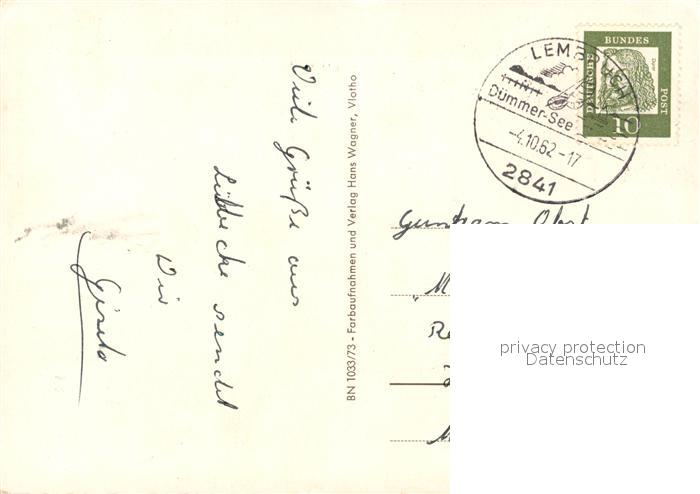 Viele Grüße aus
Lübbecke sendet
Dir
Gisela
BN 1033/73 - Farbaufnahmen und Verlag Hans Wagner, Vlotho
LEMBRUCH
Dümmer-See
-4.10.62-17
2841
DEUTSCHE
BUNDES
POST
Dürer
10
Guntram Obst
"M
Re
M
privacy protection
Datenschutz